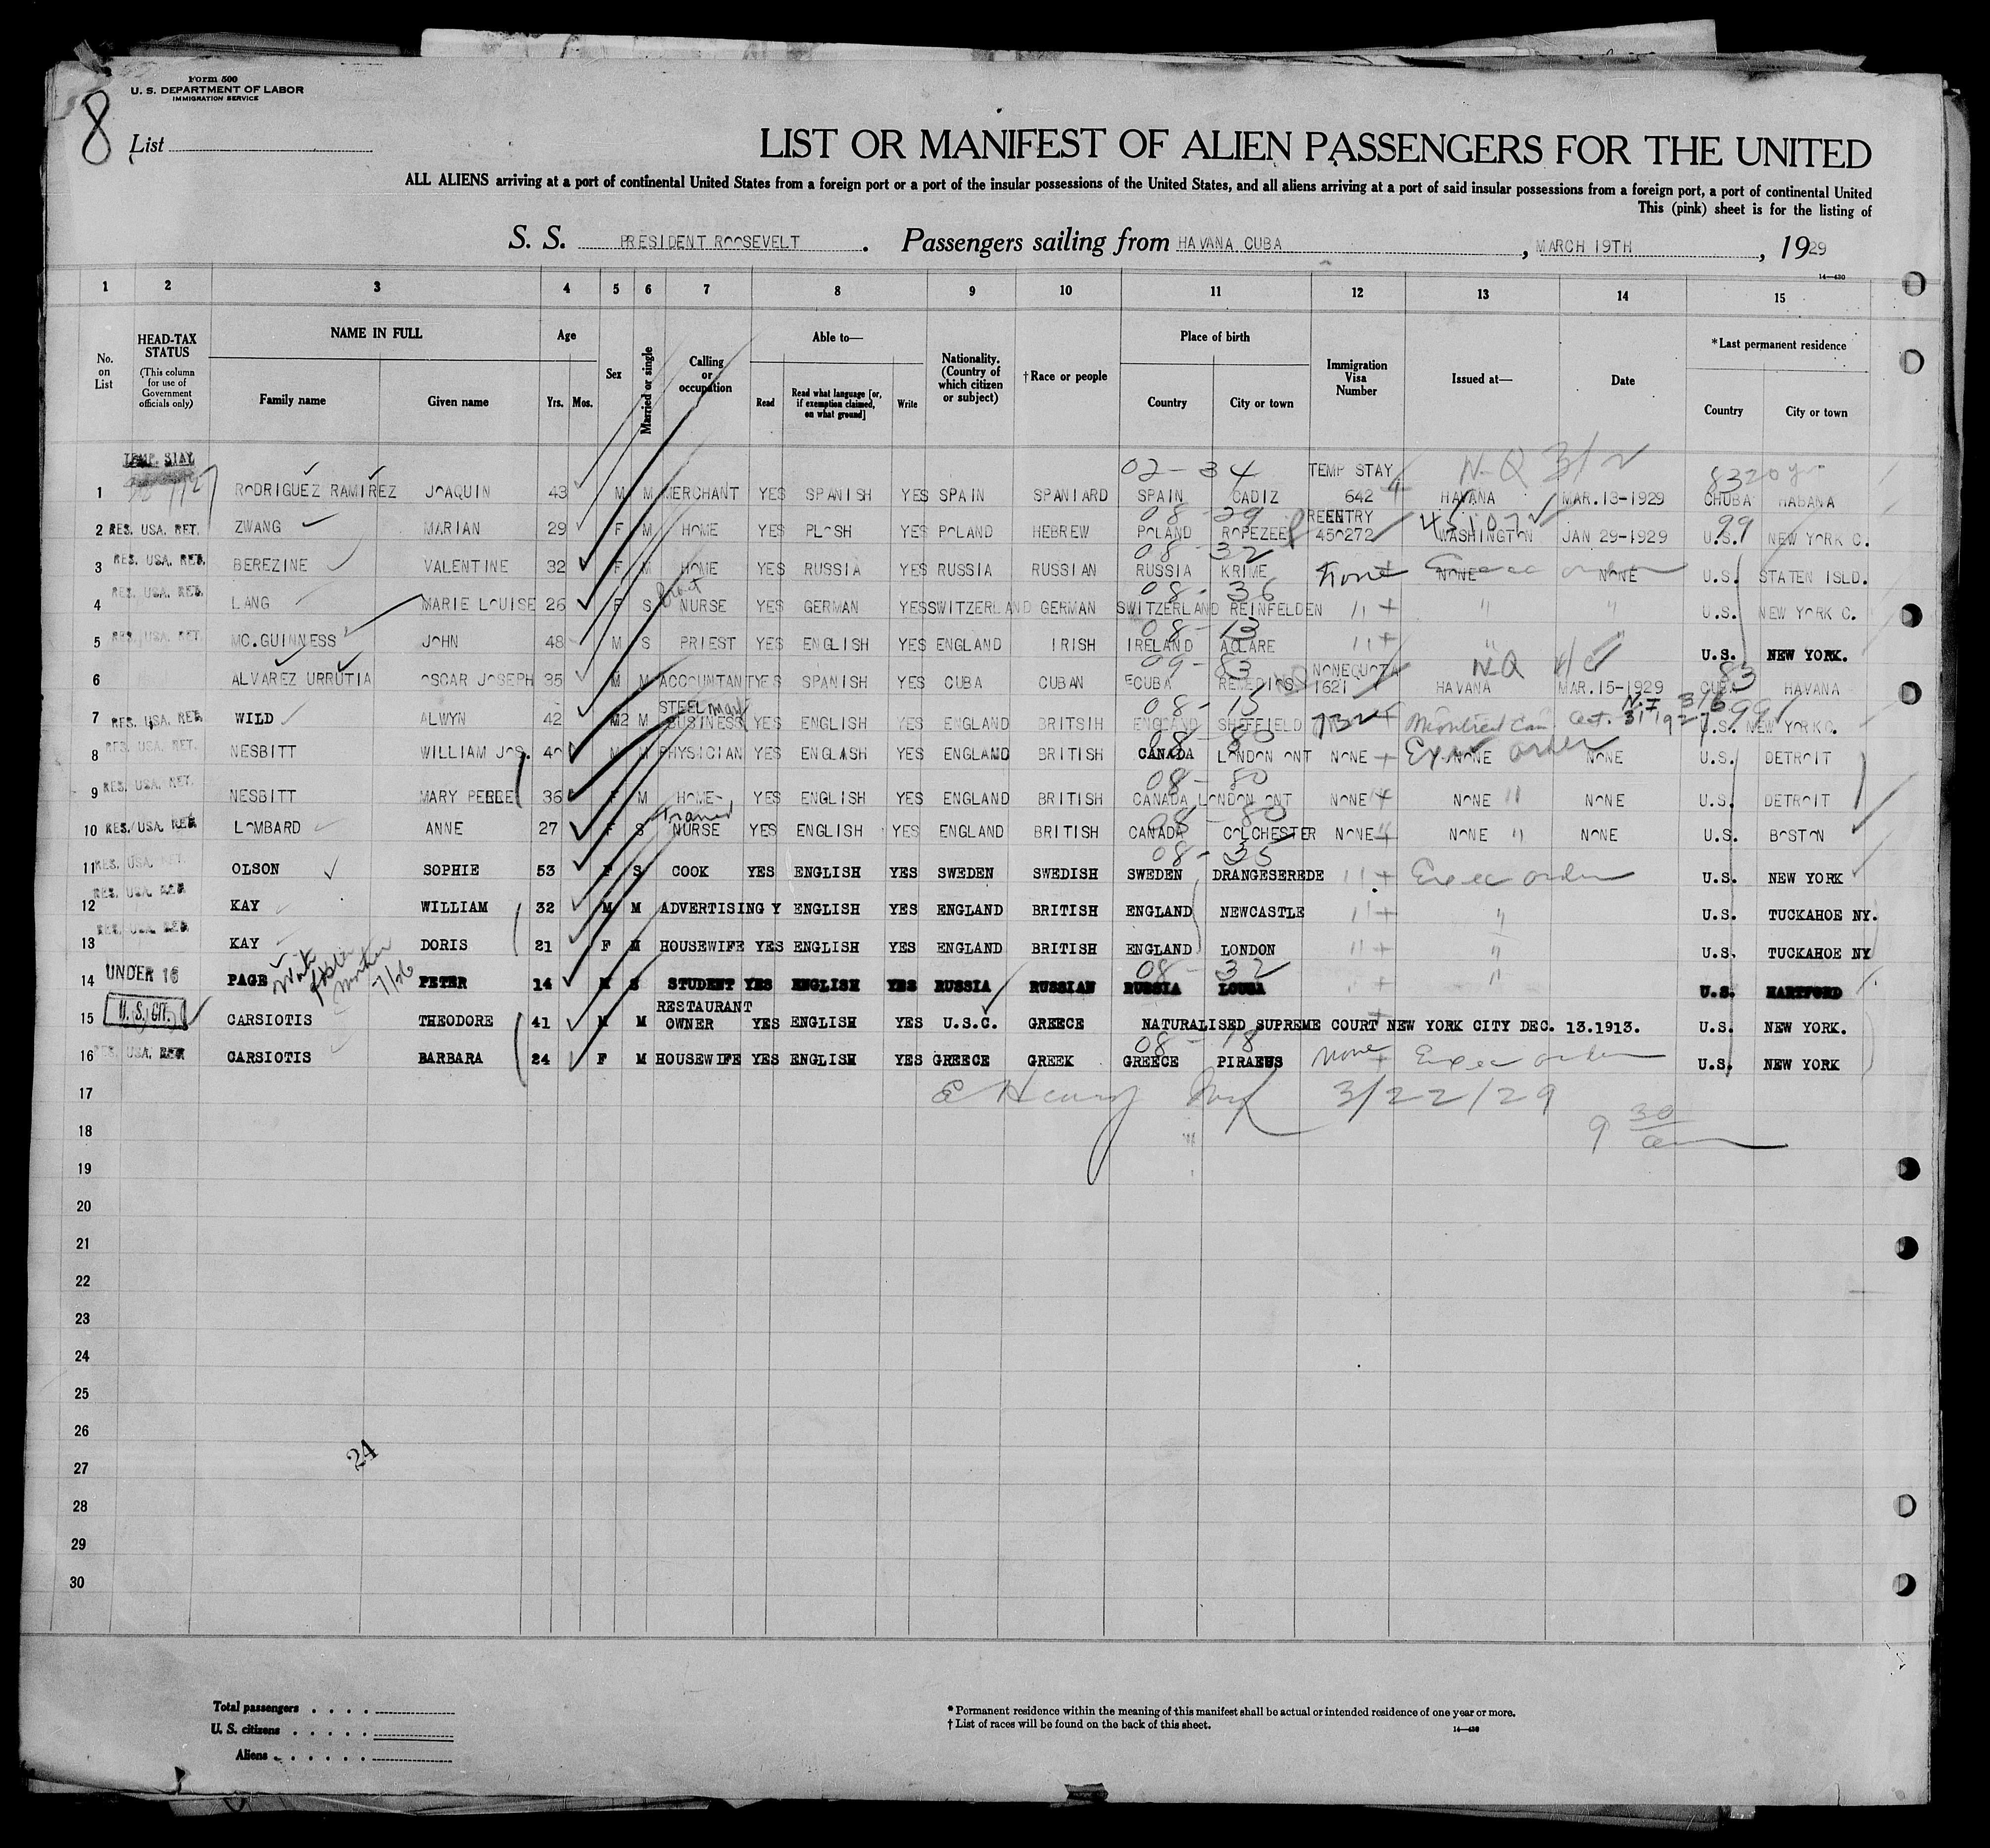 Form 500
U. S. DEPARTMENT OF LABOR
IMMIGRATION SERVICE
8 List
LIST OR MANIFEST OF ALIEN PASSENGERS FOR THE UNITED
ALL ALIENS arriving at a port of continental United States from a foreign port or a port of the insular possessions of the United States, and all aliens arriving at a port of said insular possessions from a foreign port, a port of continental United
This (pink) sheet is for the listing of
S. S. PRESIDENT ROOSEVELT. Passengers sailing from HAVANA CUBA, MARCH 19TH, 1929
14—430
1 2 3 4 5 6 7 8 9 10 11 12 13 14 15
No. on List
HEAD-TAX STATUS (This column for use of Government officials only)
NAME IN FULL Family name Given name
Age Yrs. Mos.
Sex
Married or single
Calling or occupation
Able to— Read Read what language [or, if exemption claimed, on what ground] Write
Nationality. (Country of which citizen or subject)
†Race or people
Place of birth Country City or town
Immigration Visa Number
Issued at—
Date
*Last permanent residence Country City or town
TEMP. STAY 02-34 TEMP STAY N-Q 3/2
1 RODRIGUEZ RAMIREZ JOAQUIN 43 M M MERCHANT YES SPANISH YES SPAIN SPANIARD SPAIN CADIZ 642 HAVANA MAR.13-1929 CHUBA HABANA
08-29 REENTRY 45107 99
2 RES. USA. RET. ZWANG MARIAN 29 F M HOME YES PLOSH YES POLAND HEBREW POLAND ROPEZEE 450272 WASHINGTON JAN 29-1929 U.S. NEW YORK C.
08-32
3 RES. USA. RET. BEREZINE VALENTINE 32 F M HOME YES RUSSIA YES RUSSIA RUSSIAN RUSSIA KRIME None NONE NONE U.S. STATEN ISLD.
08-36
4 RES. USA. RET. LANG MARIE LOUISE 26 F S NURSE YES GERMAN YES SWITZERLAND GERMAN SWITZERLAND REINFELDEN " " " U.S. NEW YORK C.
08-13
5 RES. USA. RET. MC.GUINNESS JOHN 48 M S PRIEST YES ENGLISH YES ENGLAND IRISH IRELAND ACLARE " " " U.S. NEW YORK.
09-83 NONEQUOTA N-Q 83
6 ALVAREZ URRUTIA OSCAR JOSEPH 35 M M ACCOUNTANT YES SPANISH YES CUBA CUBAN CUBA REMEDIOS 1621 HAVANA MAR.15-1929 CUBA HAVANA
STEEL man 08-15 N.I 3/6 99
7 RES. USA. RET. WILD ALWYN 42 M2 M BUSINESS YES ENGLISH YES ENGLAND BRITSIH ENGLAND SHEFFIELD 732 Montreal Can. Oct. 31 1927 U.S. NEW YORK C.
08-80 Exec order
8 RES. USA. RET. NESBITT WILLIAM JOS. 40 M M PHYSICIAN YES ENGLASH YES ENGLAND BRITISH CANADA LONDON ONT NONE NONE NONE U.S. DETROIT
08-80
9 RES. USA. RET. NESBITT MARY PEBLE 36 F M HOME YES ENGLISH YES ENGLAND BRITISH CANADA LONDON ONT NONE NONE " NONE U.S. DETROIT
Trained 08-80
10 RES. USA. RET. LOMBARD ANNE 27 F S NURSE YES ENGLISH YES ENGLAND BRITISH CANADA COLCHESTER NONE NONE " NONE U.S. BOSTON
08-35
11 RES. USA. RET. OLSON SOPHIE 53 F S COOK YES ENGLISH YES SWEDEN SWEDISH SWEDEN DRANGESEREDE " Exec order U.S. NEW YORK
12 RES. USA. RET. KAY WILLIAM 32 M M ADVERTISING Y ENGLISH YES ENGLAND BRITISH ENGLAND NEWCASTLE " " U.S. TUCKAHOE NY.
13 RES. USA. RET. KAY DORIS 21 F M HOUSEWIFE YES ENGLISH YES ENGLAND BRITISH ENGLAND LONDON " " U.S. TUCKAHOE NY
08-32
14 UNDER 16 PAGE PETER 14 M S STUDENT YES ENGLISH YES RUSSIA RUSSIAN RUSSIA LOUGA " U.S. HARTFORD
RESTAURANT
15 U. S. CIT. CARSIOTIS THEODORE 41 M M OWNER YES ENGLISH YES U.S.C. GREECE NATURALISED SUPREME COURT NEW YORK CITY DEC. 13.1913. U.S. NEW YORK.
08-18
16 RES. USA. RET. CARSIOTIS BARBARA 24 F M HOUSEWIFE YES ENGLISH YES GREECE GREEK GREECE PIRAEUS None Exec order U.S. NEW YORK
17 3/22/29
18 9 30 am
19
20
21
22
23
24
25
26
27
28
29
30
24
Total passengers
U. S. citizens
Aliens
* Permanent residence within the meaning of this manifest shall be actual or intended residence of one year or more.
† List of races will be found on the back of this sheet.
14—430